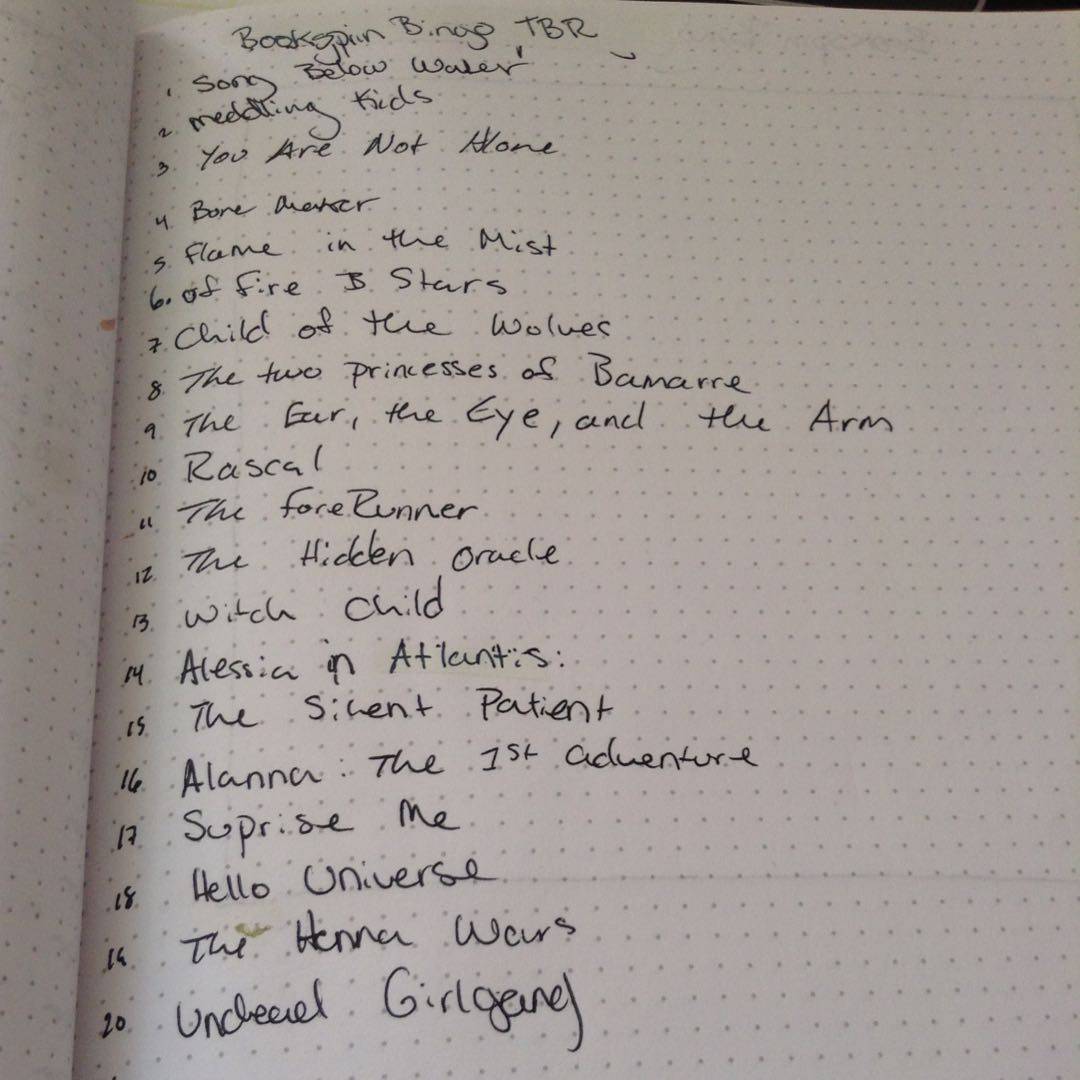 Bookspin Bingo TBR
1. Song Below Water
2. meddling Kids
3. You Are Not Alone
4. Bone
5. Flame in the Mist
6. of Fire & Stars
7. Child of the Wolves
8. The two princesses of Bamarre
9. The Ear, the Eye, and the Arm
10. Rascal
11. The ForeRunner
12. The Hidden oracle
13. Witch Child
14. Alessia in Atlantis:
15. The Silent Patient
16. Alanna: The 1st adventure
17. Suprise Me
18. Hello Universe
19. The Henna Wars
20. Undead Girlgang